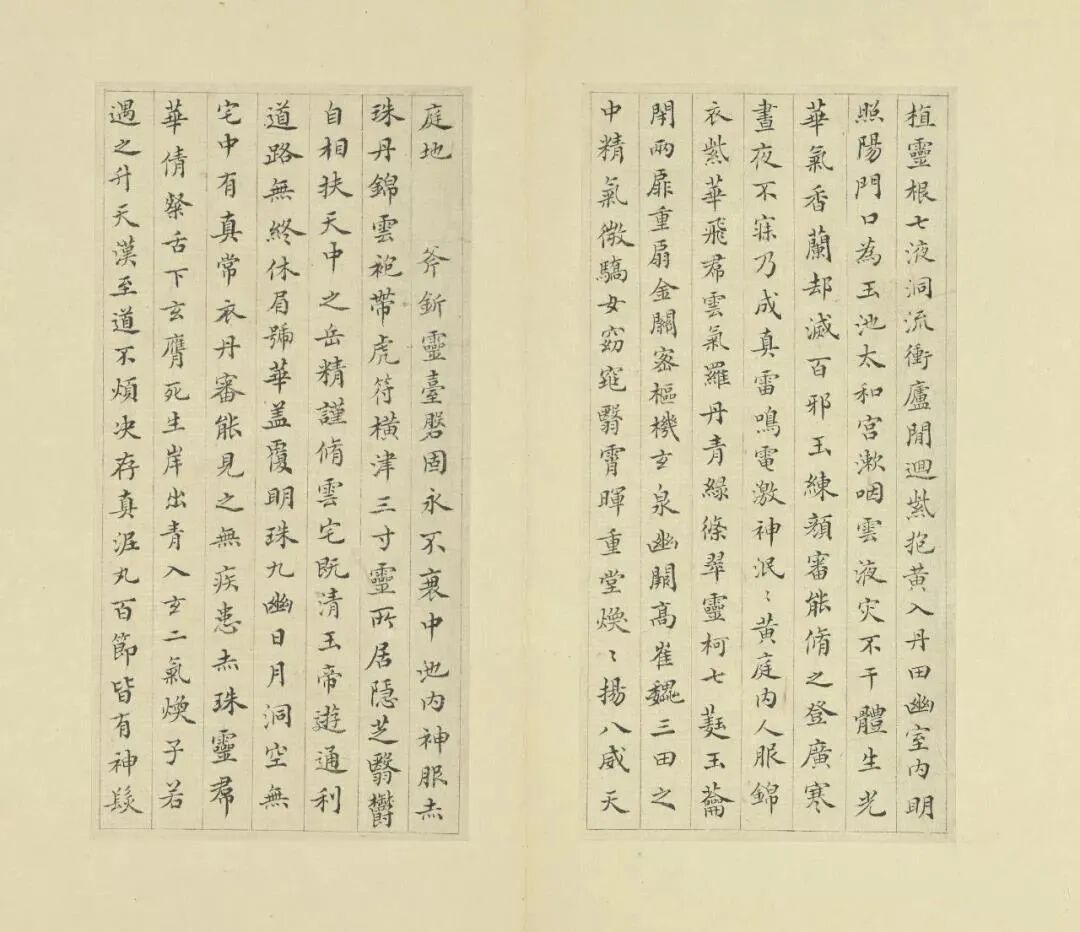 植靈根七液洞流衝廬閒迴紫抱黃入丹田幽室內明
照陽門口為玉池太和宮漱咽靈液灾不干體生光
華氣香蘭却滅百邪玉練顏審能脩之登廣寒
晝夜不寐乃成真雷鳴電激神泯〻黃庭內人服錦
衣紫華飛帬雲氣羅丹青綠條翠靈柯七蕤玉蘥
閇兩扉重扇金關密樞機玄泉幽闕高崔巍三田之
中精氣微驕女窈窕翳霄暉重堂煥〻揚八威天
庭地 斧釿靈臺磐固永不衰中池內神服赤
珠丹錦雲袍帶虎符橫津三寸靈所居隱芝翳欝
自相扶天中之岳精謹脩雲宅既清玉帝遊通利
道路無終休眉號華盖覆明珠九幽日月洞空無
宅中有真常衣丹審能見之無疾患赤珠靈帬
華倩粲舌下玄膺死生岸出青入玄二氣煥子若
遇之升天漢至道不煩决存真泥丸百節皆有神髮